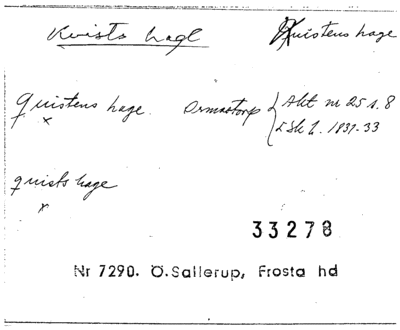 Kvista hage Quistens hage
quistens hage. Ormastorp { Akt nr 25 s. 8
x L Sk L. 1831-33
quists hage
x
33278
Nr 7290. Ö.Sallerup, Frosta hd